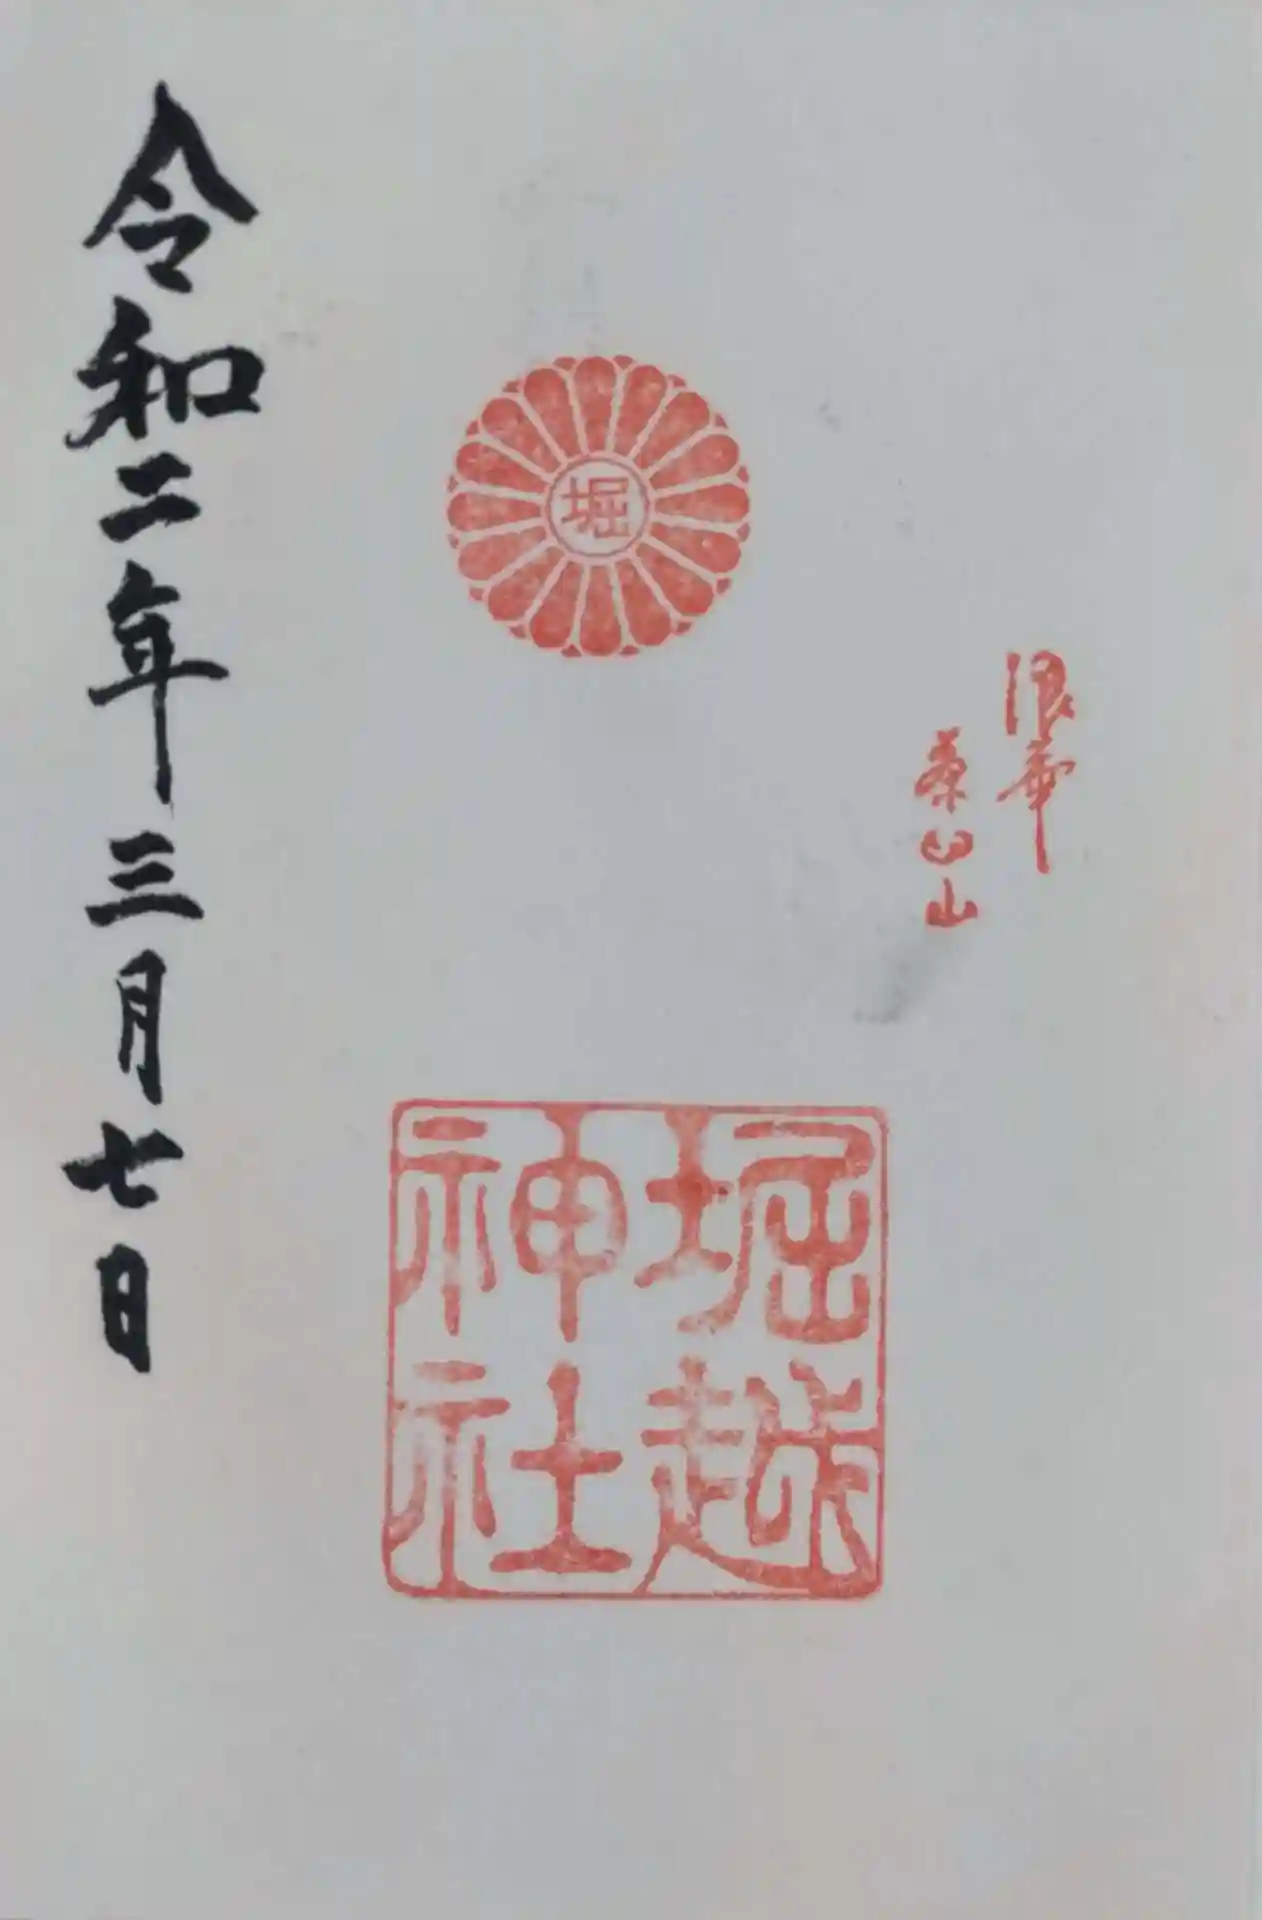 浪華
茶臼山
堀
堀越
神社
令和二年三月七日